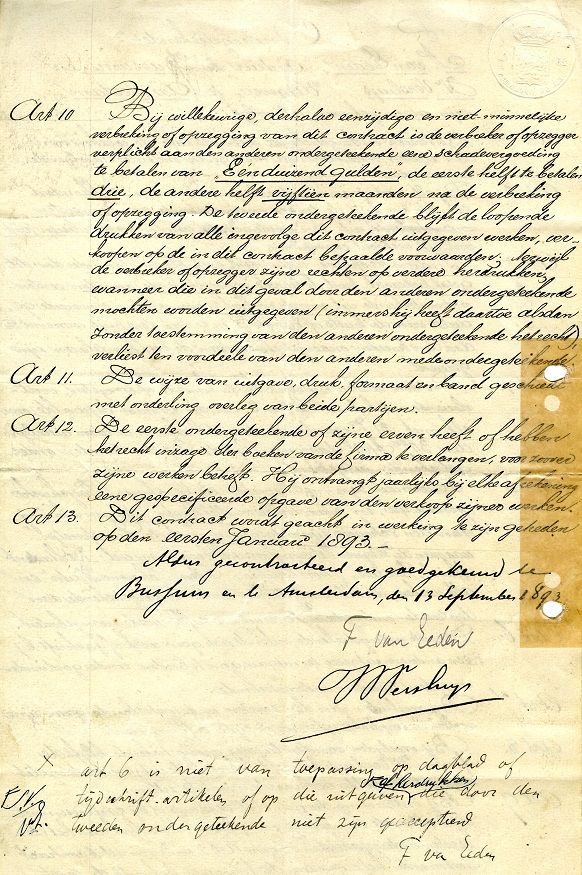 Art 10 Bij willekeurige, derhalve eenzijdige en niet-minnelijke
verbreking of opzegging van dit contract is de verbreker of opzegger
verplicht aan den anderen ondergeteekende eene schadevergoeding
te betalen van "Eenduizend Gulden", de eerste helft te betalen
drie, de andere helft vijftien maanden na de verbreking
of opzegging. De tweede ondergeteekende blijft de loopende
drukken van alle ingevolge dit contract uitgegeven werken, ver-
koopen op de in dit contract bepaalde voorwaarden. Terwijl
de verbreker of opzegger zijne rechten op verdere herdrukken,
wanneer die in dit geval door den anderen ondergeteekende
mochten worden uitgegeven (immers hij heeft daartoe alsdan
zonder toestemming van den anderen ondergeteekende het recht)
verliest ten voordeele van den anderen medeondergeteekende.
Art 11. De wijze van uitgave, druk, formaat en band geschiedt
met onderling overleg van beide partijen.
Art 12. De eerste ondergeteekende of zijne erven heeft of hebben
het recht inzage der boeken van de firma te verlangen, voor zoover
zijne werken betreft. Hij ontvangt jaarlijks bij elke afrekening
eene gespecificeerde opgave van den verkoop zijner werken.
Art 13. Dit contract wordt geacht in werking te zijn getreden
op den eersten Januari 1893.-
Aldus gecontracteerd en goedgekeurd te
Bussum en te Amsterdam, den 13 September 1893
F van Eeden
W Versluys
X art 6 is niet van toepassing op dagblad of
tijdschrift-artikelen of op die uitgaven of herdrukken die door den
tweeden ondergeteekende niet zijn geaccepteerd
F van Eeden